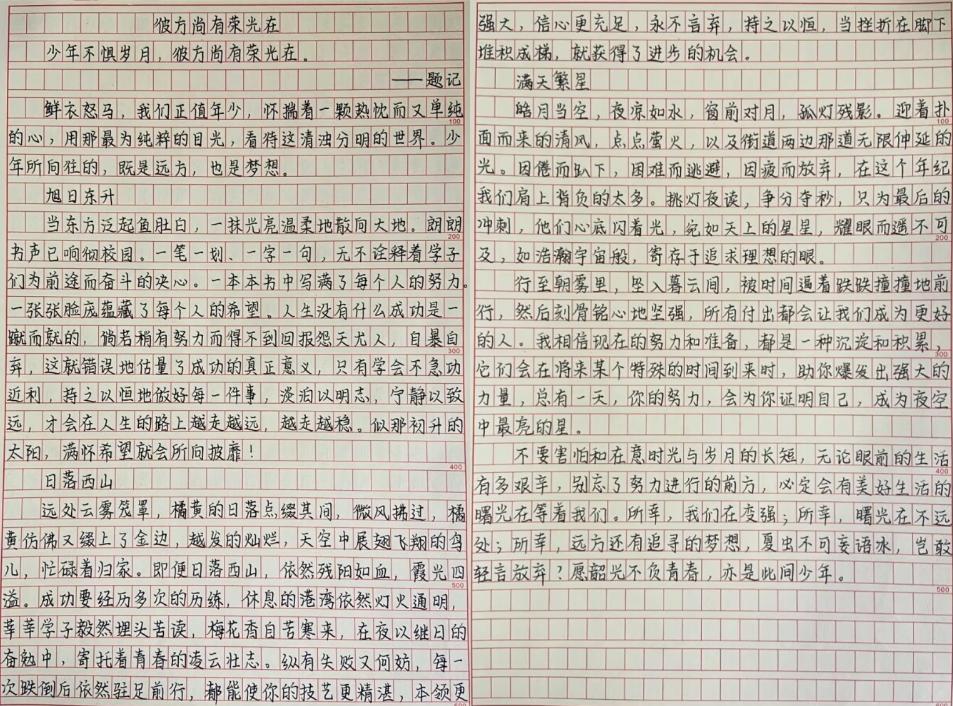 彼方尚有荣光在
少年不惧岁月，彼方尚有荣光在。
——题记
鲜衣怒马，我们正值年少，怀揣着一颗热忱而又单纯
100
的心，用那最为纯粹的目光，看待这清浊分明的世界。少
年所向往的，既是远方，也是梦想。
旭日东升
当东方泛起鱼肚白，一抹光亮温柔地散向大地。朗朗
200
书声已响彻校园。一笔一划、一字一句，无不诠释着学子
们为前途而奋斗的决心。一本本书中写满了每个人的努力。
一张张脸庞蕴藏了每个人的希望。人生没有什么成功是一
蹴而就的，倘若稍有努力而得不到回报怨天尤人，自暴自
300
弃，这就错误地估量了成功的真正意义，只有学会不急功
近利，持之以恒地做好每一件事，淡泊以明志，宁静以致
远，才会在人生的路上越走越远，越走越稳。似那初升的
太阳，满怀希望就会所向披靡！
400
日落西山
远处云雾笼罩，橘黄的日落点缀其间，微风拂过，橘
黄仿佛又缀上了金边，越发的灿烂，天空中展翅飞翔的鸟
儿，忙碌着归家。即便日落西山，依然残阳如血，霞光四
500
溢。成功要经历多次的历练，休息的港湾依然灯火通明，
莘莘学子毅然埋头苦读，梅花香自苦寒来，在夜以继日的
奋勉中，寄托着青春的凌云壮志。纵有失败又何妨，每一
次跌倒后依然驻足前行，都能使你的技艺更精湛，本领更
600
强大，信心更充足，永不言弃，持之以恒，当挫折在脚下
堆积成梯，就获得了进步的机会。
满天繁星
皓月当空，夜凉如水，窗前对月，孤灯残影。迎着扑
100
面而来的清风，点点萤火，以及街道两边那道无限伸延的
光。因倦而趴下，困难而逃避，因疲而放弃，在这个年纪
我们肩上背负的太多。挑灯夜读，争分夺秒，只为最后的
冲刺，他们心底闪着光，宛如天上的星星，耀眼而遥不可
200
及，如浩瀚宇宙般，寄存于追求理想的眼。
行至朝雾里，坠入暮云间，被时间逼着跌跌撞撞地前
行，然后刻骨铭心地坚强，所有付出都会让我们成为更好
的人。我相信现在的努力和准备，都是一种沉淀和积累，
300
它们会在将来某个特殊的时间到来时，助你爆发出强大的
力量，总有一天，你的努力，会为你证明自己，成为夜空
中最亮的星。
不要害怕和在意时光与岁月的长短，无论眼前的生活
400
有多艰辛，别忘了努力进行的前方，必定会有美好生活的
曙光在等着我们。所幸，我们在变强；所幸，曙光在不远
处；所幸，远方还有追寻的梦想，夏虫不可妄语冰，岂敢
轻言放弃？愿韶光不负青春，亦是此间少年。
500